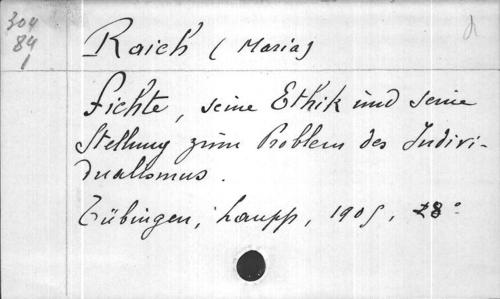 304
84
1
d
Raich (Maria)
Fichte, seine Ethik und seine
Stellung zum Problem des Indivi-
dualismus.
Tübingen, Laupp, 1905, 8°